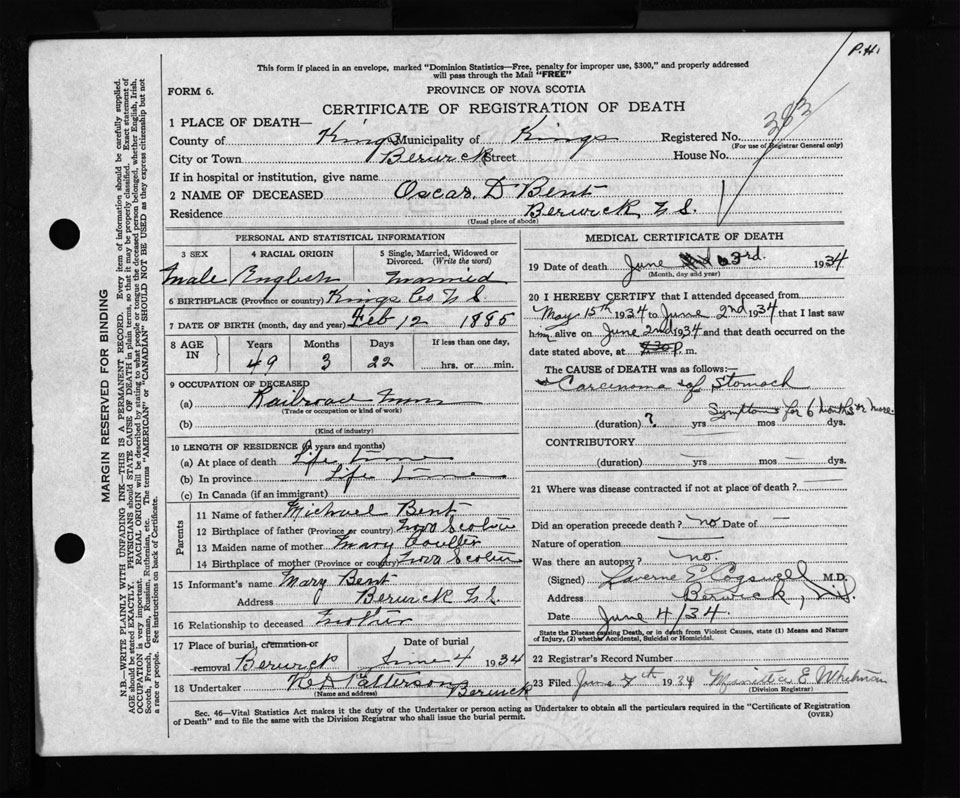 P.H.
This form if placed in an envelope, marked "Dominion Statistics—Free, penalty for improper use, $300," and properly addressed
will pass through the Mail "FREE"
FORM 6.
PROVINCE OF NOVA SCOTIA
CERTIFICATE OF REGISTRATION OF DEATH
383
1 PLACE OF DEATH—
County of Kings Municipality of Kings Registered No.
(For use of Registrar General only)
City or Town Berwick Street House No.
If in hospital or institution, give name
2 NAME OF DECEASED Oscar. D Bent
Residence Berwick N.S.
(Usual place of abode)
PERSONAL AND STATISTICAL INFORMATION
3 SEX 4 RACIAL ORIGIN 5 Single, Married, Widowed or Divorced. (Write the word)
Male English Married
6 BIRTHPLACE (Province or country) Kings Co N S
7 DATE OF BIRTH (month, day and year) Feb 12 1885
8 AGE IN Years Months Days If less than one day,
49 3 22 hrs. or min.
9 OCCUPATION OF DECEASED
(a) Railroad Man
(Trade or occupation or kind of work)
(b)
(Kind of industry)
10 LENGTH OF RESIDENCE (in years and months)
(a) At place of death Life Time
(b) In province Life Time
(c) In Canada (if an immigrant)
Parents
11 Name of father Michael Bent
12 Birthplace of father (Province or country) Nova Scotia
13 Maiden name of mother Mary
14 Birthplace of mother (Province or country) Nova Scotia
15 Informant's name Mary Bent
Address Berwick N.S.
16 Relationship to deceased Mother
17 Place of burial, cremation or removal Date of burial
Berwick June 4 1934
18 Undertaker Patterson Berwick
(Name and address)
MEDICAL CERTIFICATE OF DEATH
19 Date of death June 3rd. 1934
(Month, day and year)
20 I HEREBY CERTIFY that I attended deceased from
May 15th 1934 to June 2nd 1934 that I last saw
him alive on June 2nd 1934 and that death occurred on
date stated above, at m.
The CAUSE OF DEATH was as follows:—
Carcinoma of Stomach
Symptoms for 6 months or more.
(duration) ? yrs mos dys.
CONTRIBUTORY
(duration) — yrs — mos — dys.
21 Where was disease contracted if not at place of death? —
Did an operation precede death? no Date of —
Nature of operation —
Was there an autopsy? no.
(Signed) Laverne E Cogswell M.D.
Address Berwick, N.S.
Date June 4/34.
State the Disease causing Death, or in death from Violent Causes, state (1) Means and Nature
of Injury, (2) whether Accidental, Suicidal or Homicidal.
22 Registrar's Record Number
23 Filed June 7th 1934 E Whitman
(Division Registrar)
Sec. 46—Vital Statistics Act makes it the duty of the Undertaker or person acting as Undertaker to obtain all the particulars required in the "Certificate of Registration
of Death" and to file the same with the Division Registrar who shall issue the burial permit.
(OVER)
MARGIN RESERVED FOR BINDING
N.B.—WRITE PLAINLY WITH UNFADING INK—THIS IS A PERMANENT RECORD. Every item of information should be carefully supplied.
AGE should be stated EXACTLY. PHYSICIANS should STATE CAUSE OF DEATH in plain terms, so that it may be properly classified. Exact statement of
OCCUPATION is very important. RACIAL ORIGIN will be described by stating to what people or tongue the deceased person belonged, whether English, Irish,
Scotch, French, German, Russian, Ruthenian, etc. The terms "AMERICAN" or "CANADIAN" SHOULD NOT BE USED as they express citizenship but not
a race or people. See instructions on back of Certificate.